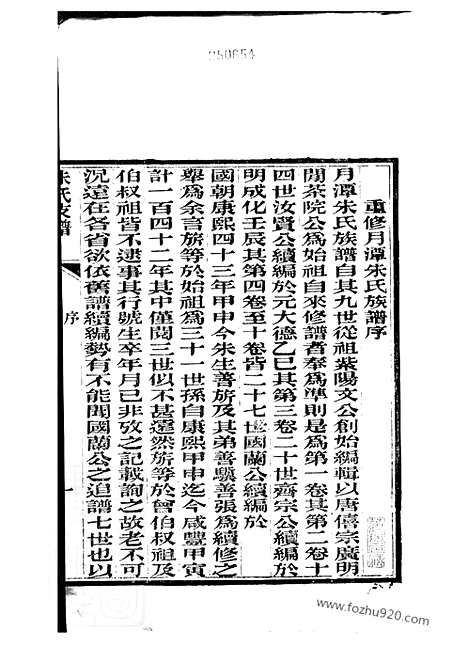 250654
重修月潭朱氏族譜序
月潭朱氏族譜自其九世從祖紫陽文公創始編輯以唐僖宗廣明
間茶院公為始祖自來修譜者奉為準則是為第一卷其第二卷十
四世汝賢公續編於元大德乙巳其第三卷二十世齊宗公續編於
明成化壬辰其第四卷至十卷皆二十七世國蘭公續編於
國朝康熙四十三年甲申今朱生善旂及其弟善驥善張為續修之
舉為余言旂等於始祖為三十一世孫自康熙甲申迄今咸豐甲寅
計一百四十二年其中僅閱三世似不甚遠然旂等於曾伯叔祖及
伯叔祖皆不逮事其行號生卒年月已非攷之記載詢之故老不可
況遠在各省欲依舊譜續編勢有不能聞國蘭公之追譜七世也以
朱氏支譜
序
一
www.fozhu920.com